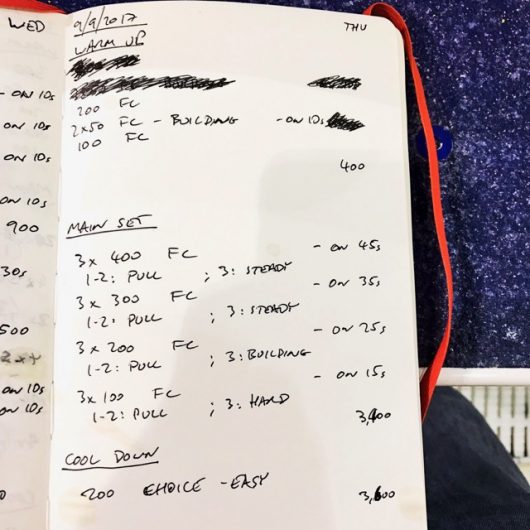 WED
- ON 10s
ON 10s
ON 10s
ON 10s
900
30s
500
2xY
ON 10s
ON 10s
0
9/9/2017 THU
WARM UP
200 FC
2x50 FC - BUILDING - ON 10s
100 FC
400
MAIN SET
3x 400 FC - ON 45s
1-2: PULL ; 3: STEADY
3 x 300 FC - ON 35s
1-2: PULL ; 3: STEADY
3 x 200 FC - ON 25s
1-2: PULL ; 3: BUILDING
3 x 100 FC - ON 15s
1-2: PULL ; 3: HARD
3,400
COOL DOWN
200 CHOICE - EASY 3,600